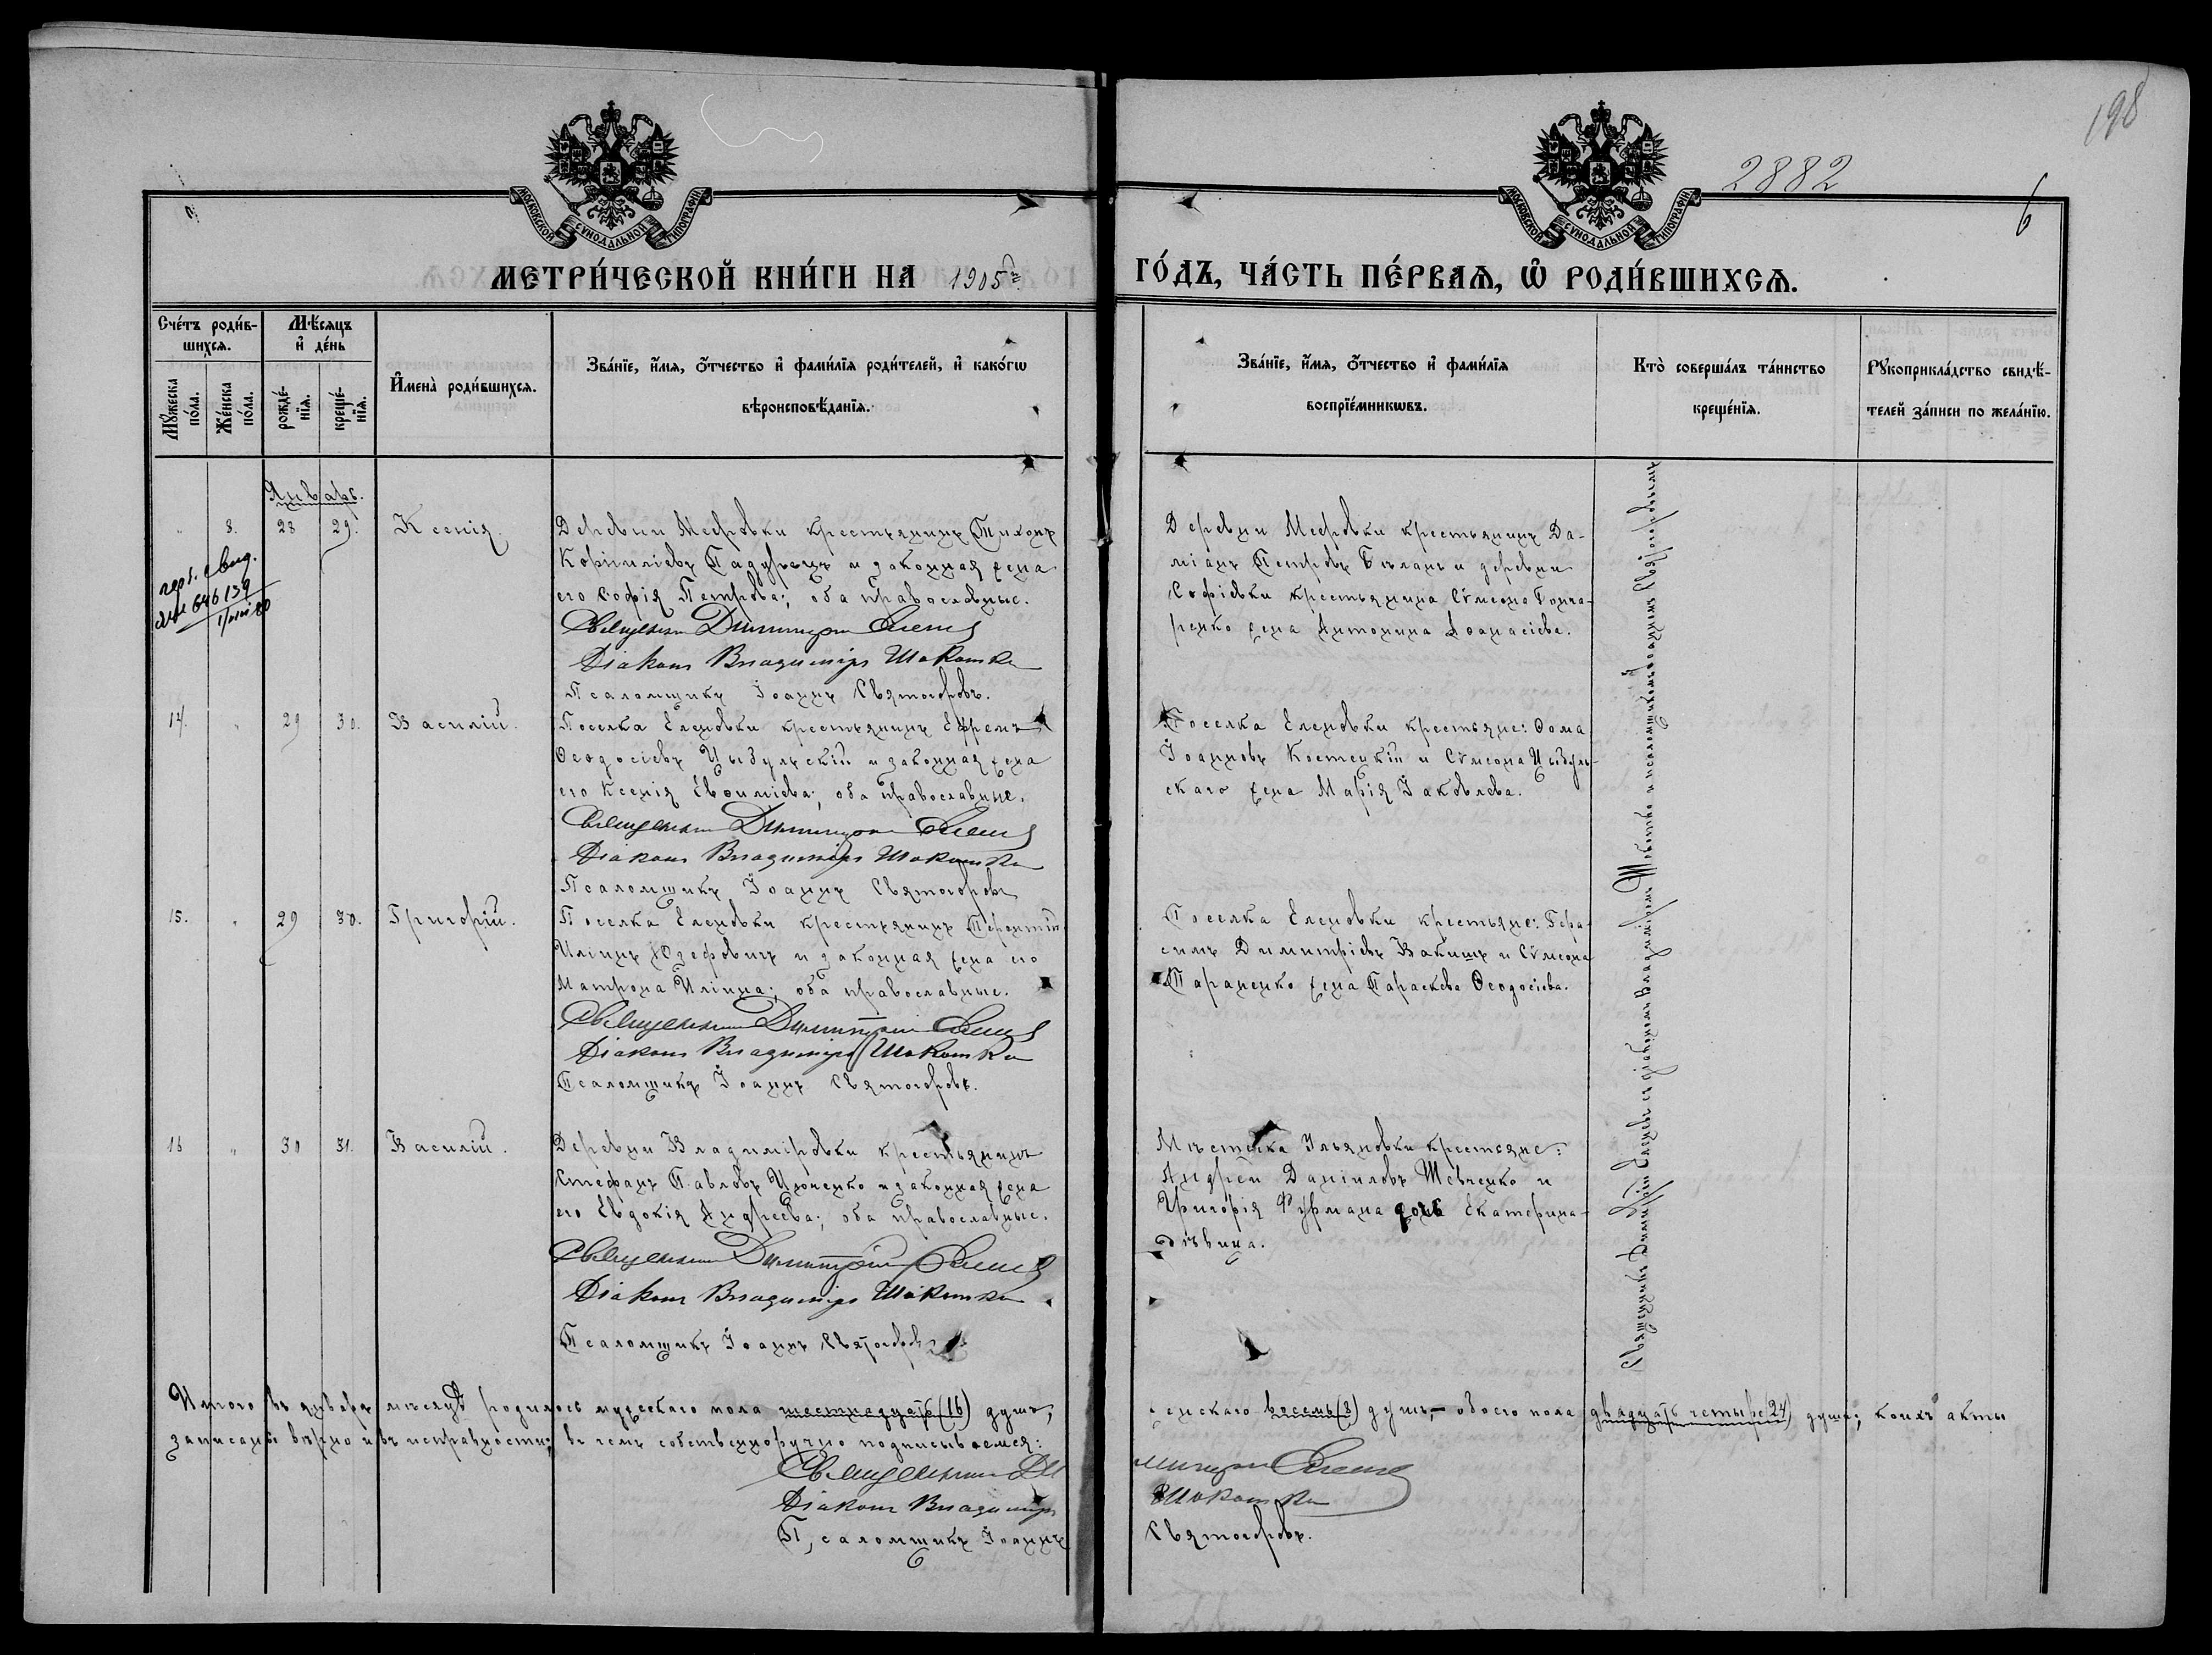 198
2882
6
МОСКОВСКОЙ СУНОДАЛЬНОЙ ТИПОГРАФІИ
МОСКОВСКОЙ СУНОДАЛЬНОЙ ТИПОГРАФІИ
МЕТРИ́ЧЕСКОЙ КНИ́ГИ НА 1905й
ГО́ДЪ, ЧА́СТЬ ПЕ́РВАѦ, Ѽ РОДИ́ВШИХСѦ.
Сче́тъ роди́в-
шихсѧ.
Мꙋ́жеска по́ла.
Же́нска по́ла.
Мѣ́сѧцъ
и҆ де́нь
рожде́-
нїѧ.
креще́-
нїѧ.
И҆мена̀ роди́вшихсѧ.
Зва́нїе, и҆́мѧ, ѻ҆́тчество и҆ фами́лїѧ роди́телей, и҆ како́гѡ
вѣроисповѣ́данїѧ.
Зва́нїе, и҆́мѧ, ѻ҆́тчество и҆ фами́лїѧ
воспрїе́мникѡвъ.
Кто̀ соверша́лъ та́инство
креще́нїѧ.
Рꙋкоприкла́дство свидѣ́-
телей за́писи по жела́нїю.
Январь.
" 8. 28 29. Ксенія.
Деревни Мефовки крестьянинъ Тихонъ
Корниліевъ Паддубецъ и законная жена
его Софія Петрова; оба православные.
Священникъ Димитрій
Діаконъ Владиміръ Шокотка
Псаломщикъ Іоаннъ Святогоровъ.
Деревни Мефовки крестьянинъ Да-
міанъ Петровъ Бѣланъ и деревни
Софіевки крестьянина Сѵмеона Гонча-
ренко жена Антонина Аѳанасіева.
646139
14. " 29 30. Василій.
Поселка Еленовки крестьянинъ Ефремъ
Ѳеодосіевъ Цыбульскій и законная жена
его Ксенія Евѳиміева; оба православные.
Священникъ Димитрій
Діаконъ Владиміръ Шокотка
Псаломщикъ Іоаннъ Святогоровъ
Поселка Еленовки крестьяне: Ѳома
Іоанновъ Костецкій и Сѵмеона Цыбуль-
скаго жена Марія Іаковлева.
15. " 29 30. Григорій.
Поселка Еленовки крестьянинъ Терентій
Иліинъ Юзефовичъ и законная жена его
Матрона Иліина; оба православные.
Священникъ Димитрій
Діаконъ Владиміръ Шокотка
Псаломщикъ Іоаннъ Святогоровъ.
Поселка Еленовки крестьяне: Гера-
симъ Димитріевъ Вакишъ и Сѵмеона
Тараненко жена Параскева Ѳеодосіева.
16 " 30 31. Василій.
Деревни Владиміровки крестьянинъ
Стефанъ Павловъ Ильченко и законная жена
его Евдокія Андреева; оба православные.
Священникъ Димитрій
Діаконъ Владиміръ Шокотка
Псаломщикъ Іоаннъ Святогоровъ
Мѣстечка Ульяновки крестьяне:
Андрей Даніиловъ Шевченко и
Григорія Фурмана дочь Екатерина-
дѣвица.
Священникъ Димитрій съ діакономъ Владиміромъ и псаломщикомъ Іоанномъ Святогоровымъ
Итого въ январѣ мѣсяцѣ родилось мужескаго пола шестнадцать (16) душъ,
женскаго восемь (8) душъ,- обоего пола двадцать четыре (24) душъ; коихъ акты
записаны вѣрно и въ исправности; въ чемъ собственноручно подписываемся:
Священникъ Димитрій
Діаконъ Владиміръ Шокотка
Псаломщикъ Іоаннъ Святогоровъ.